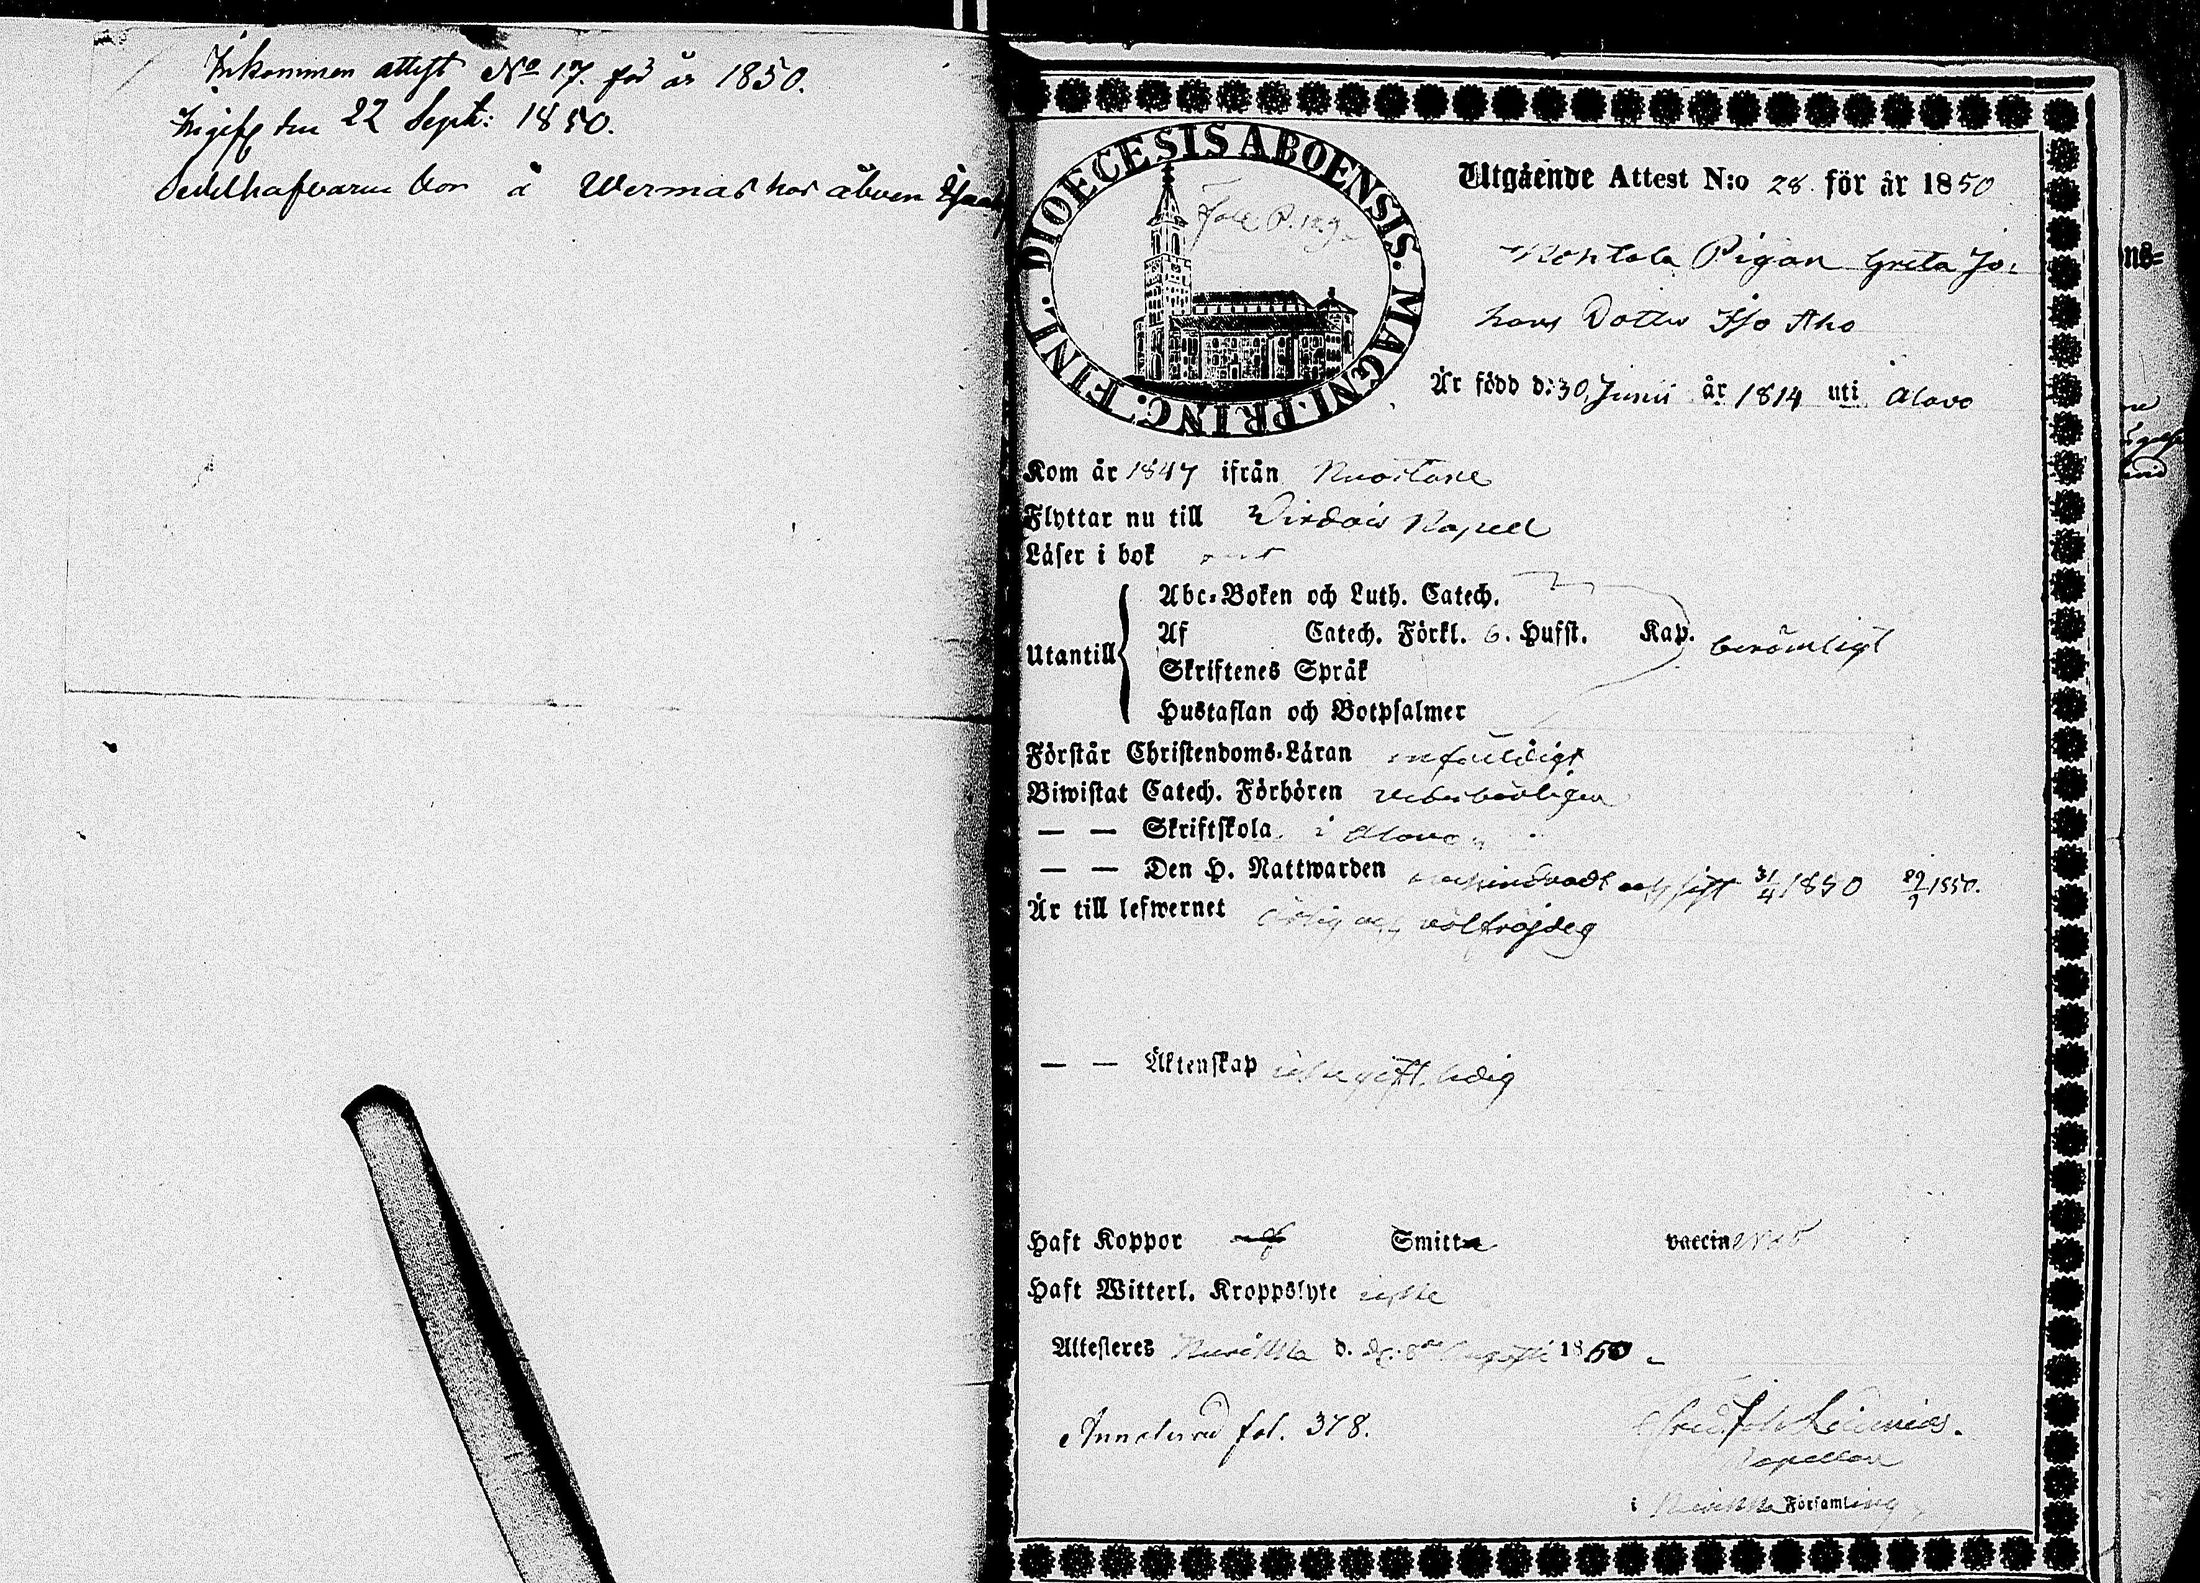 Inkommen attest No 17. för år 1850.
den 22 Sept: 1850.
Sedelhafvaren bor å Wermas hos åboen
DIOECESIS ABOENSIS. MAGNI. PRINC. FINL.
Utgående Attest N:o 28. för år 1850
Pigan Greta Jo-
hans Dotter Iso Aho
Är född d: 30 Junii år 1814 uti Alavo
Kom år 1847 ifrån Kuortane
Flyttar nu till Virdois Kapell
Läser i bok
Utantill
Abc-Boken och Luth. Catech.
Af Catech. Förkl. 6. Hufst. Kap. berömligt
Skriftenes Språk
Hustaflan och Botpsalmer
Förstår Christendoms-Läran enfaldigt
Biwistat Catech. Förhören vederbörligen
— — Skriftskola i Alavo
— — Den H. Nattwarden och sist 31/4 1850 29/9 1850.
Är till lefwernet ärlig och välfräjdeg
— — Äktenskap ledig
Haft Koppor Smitt vaccinerad
Haft Witterl. Kroppslyte icke
Attesteres d. 1850
Annoterad fol. 378.
Capellan
i Församling